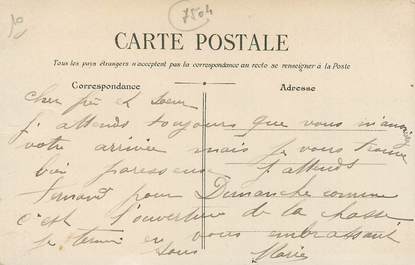 7504
CARTE POSTALE
Tous les pays étrangers n'acceptent pas la correspondance au recto se renseigner à la Poste
Correspondance
Adresse
cher frère et soeur
j'attends toujours que vous m'anoncé
votre arrivée mais je vous trouve
bien paresseux j'attends
Fernand pour Dimanche comme
c'est l'ouverture de la chasse
je termine en vous embrassant
tous Marie